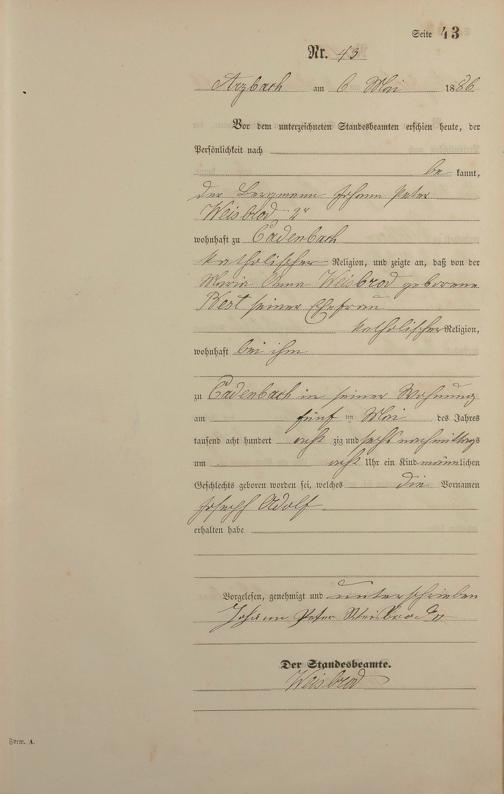 Seite 43
Nr. 43
Arzbach am 6 Mai 1886
Vor dem unterzeichneten Standesbeamten erschien heute, der
Persönlichkeit nach
be kannt,
der Bergmann Johann Peter
Weisbrod 2r
wohnhaft zu Cadenbach
katholischer Religion, und zeigte an, daß von der
Maria Anna Weisbrod geborene
Best seiner Ehefrau
katholischer Religion,
wohnhaft bei ihm
zu Cadenbach in seiner Wohnung
am fünf ten Mai des Jahres
tausend acht hundert acht zig und sechs nachmittags
um acht Uhr ein Kind männlichen
Geschlechts geboren worden sei, welches die Vornamen
Joseph Adolf
erhalten habe
Vorgelesen, genehmigt und unterschrieben
Johann Peter Weisbrod
Der Standesbeamte.
Weisbrod
Form. A.